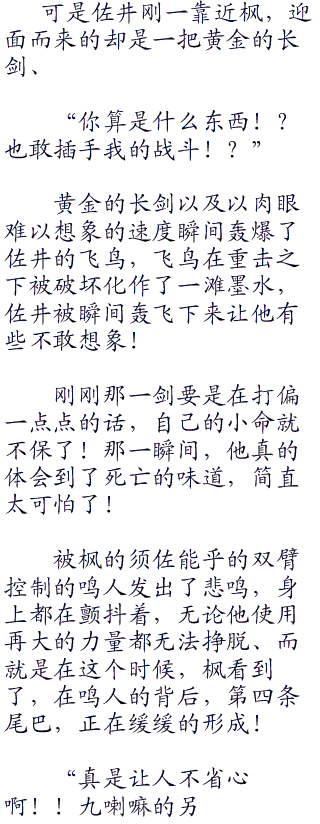 可是佐井刚一靠近枫，迎
面而来的却是一把黄金的长
剑、
“你算是什么东西！？
也敢插手我的战斗！？”
黄金的长剑以及以肉眼
难以想象的速度瞬间轰爆了
佐井的飞鸟，飞鸟在重击之
下被破坏化作了一滩墨水，
佐井被瞬间轰飞下来让他有
些不敢想象！
刚刚那一剑要是在打偏
一点点的话，自己的小命就
不保了！那一瞬间，他真的
体会到了死亡的味道，简直
太可怕了！
被枫的须佐能乎的双臂
控制的鸣人发出了悲鸣，身
上都在颤抖着，无论他使用
再大的力量都无法挣脱、而
就是在这个时候，枫看到
了，在鸣人的背后，第四条
尾巴，正在缓缓的形成！
“真是让人不省心
啊！！九喇嘛的另